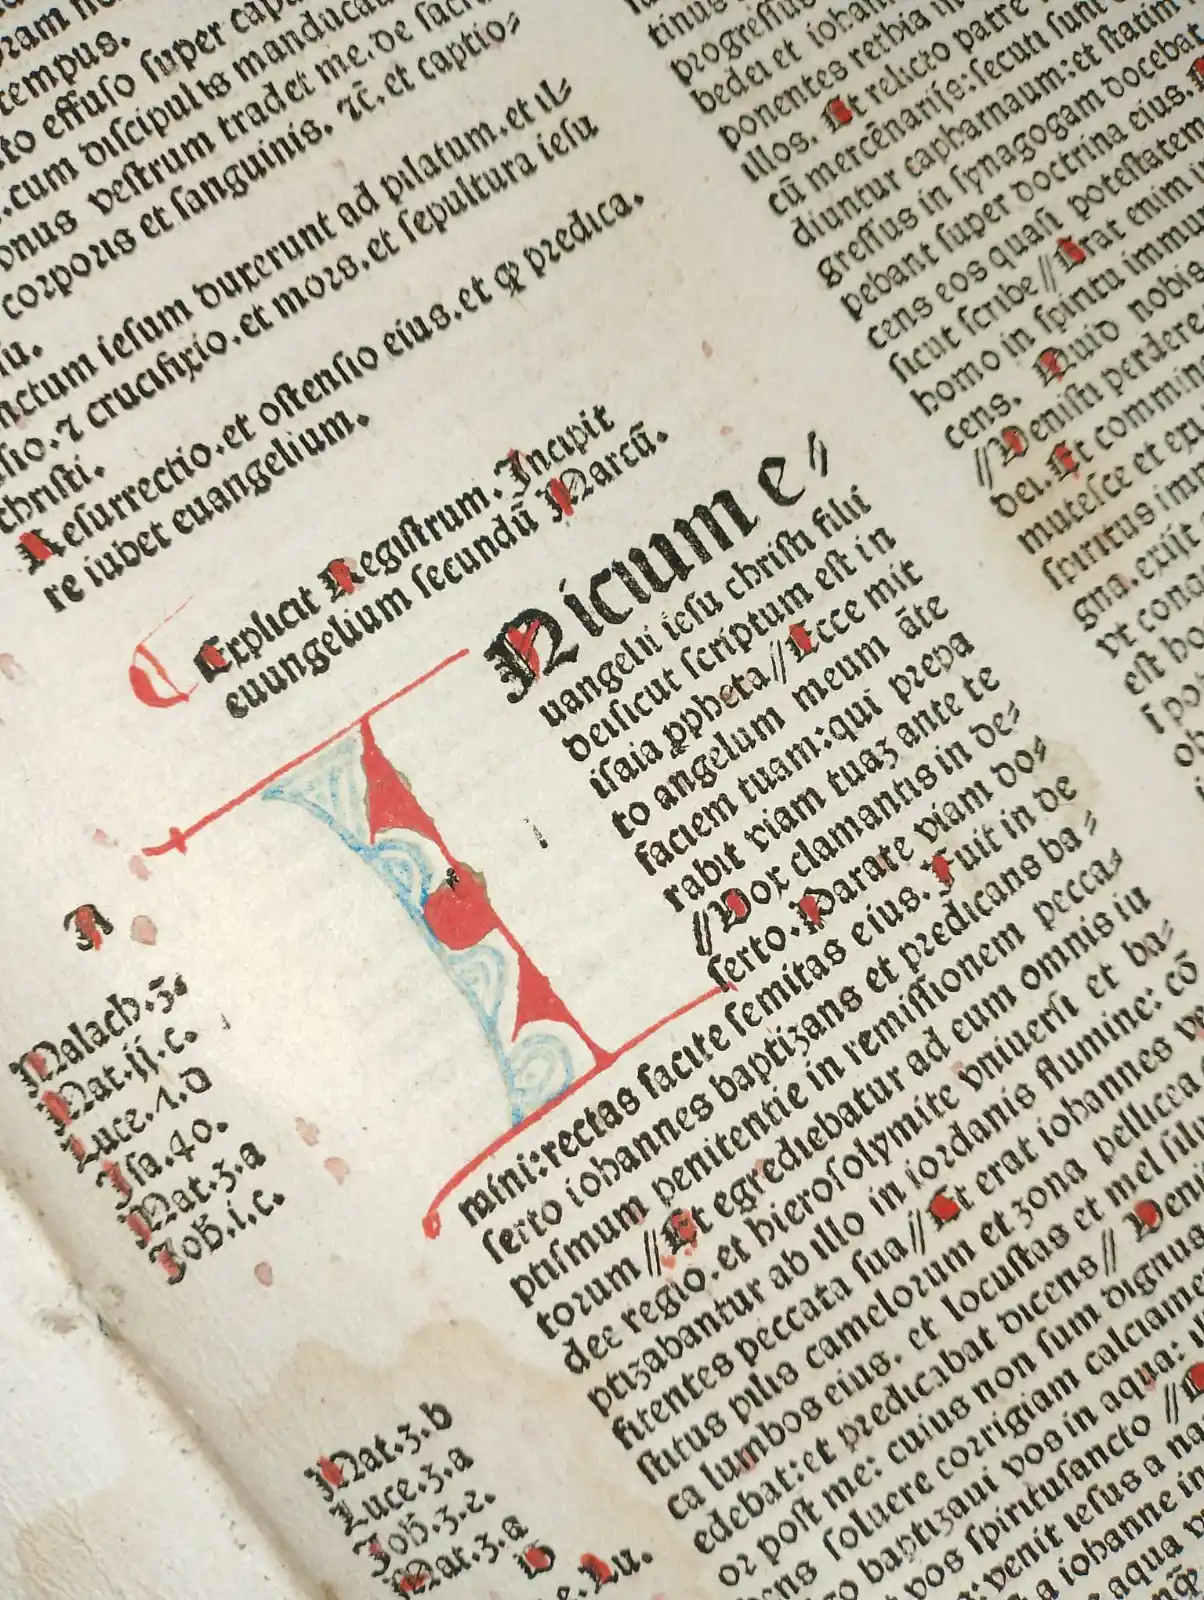 tempus.
to effuso super cap
cum discipulis manduca
vnus vestrum tradet me. de sac
corporis et sanguinis. ⁊c̄. et captio⸗
su.
nctum iesum duxerunt ad pilatum. et il⸗
sio. ⁊ crucifixio. et mors. et sepultura iesu
christi.
Resurrectio. et ostensio eius. et ꝙ predica.
re iubet euangelium.
Explicit Registrum. Incipit
euungelium secundū Marcū.
Nicium e⸗
uangelii iesu christi filii
dei sicut scriptum est in
isaia ꝓpheta // Ecce mit
to angelum meum āte
faciem tuam: qui prepa
rabit viam tuaꝫ ante te
// Vox clamantis in de⸗
serto. Parate viam do⸗
mini: rectas facite semitas eius. Fuit in de
serto iohannes baptizans et predicans ba⸗
ptismum penitentie in remissionem pecca⸗
torum // Et egrediebatur ad eum omnis iu
dee regio. et hierosolymite vniuersi et ba⸗
ptizabantur ab illo in iordanis flumine: cō
fitentes peccata sua // Et erat iohannes v
stitus pilis camelorum et zona pellicea
ca lumbos eius. et locustas et mel silu
edebat: et predicabat dicens // Veni
or post me: cuius non sum dignus
ens soluere corrigiam calciame
baptizaui vos in aqua:
vos spiritusancto //
: venit iesus a na
a iohanne i
aqua
A
Malach. 3.
Mat. ij. c.
Luce. 1. d
Isa. 40.
Mat. 3. a
Joh. i. c.
Mat. 3. b
Luce. 3. a
Joh. 3. e.
Mat. 3. a
B
tinus
progressus
bedei et iohan
ponentes rethia in
illos. Et relicto patre
cū mercēnariis: secuti sunt
diuntur capharnaum: et statim
gressus in synagogam docebat
pebant super doctrina eius.
cens eos quasi potestatem
sicut scribe // Erat enim i
homo in spiritu immu
cens. Quid nobis
// Venisti perdere
dei. Et commin
mutesce et exi
spiritus imm
gna. exiit
vt conq
est ho